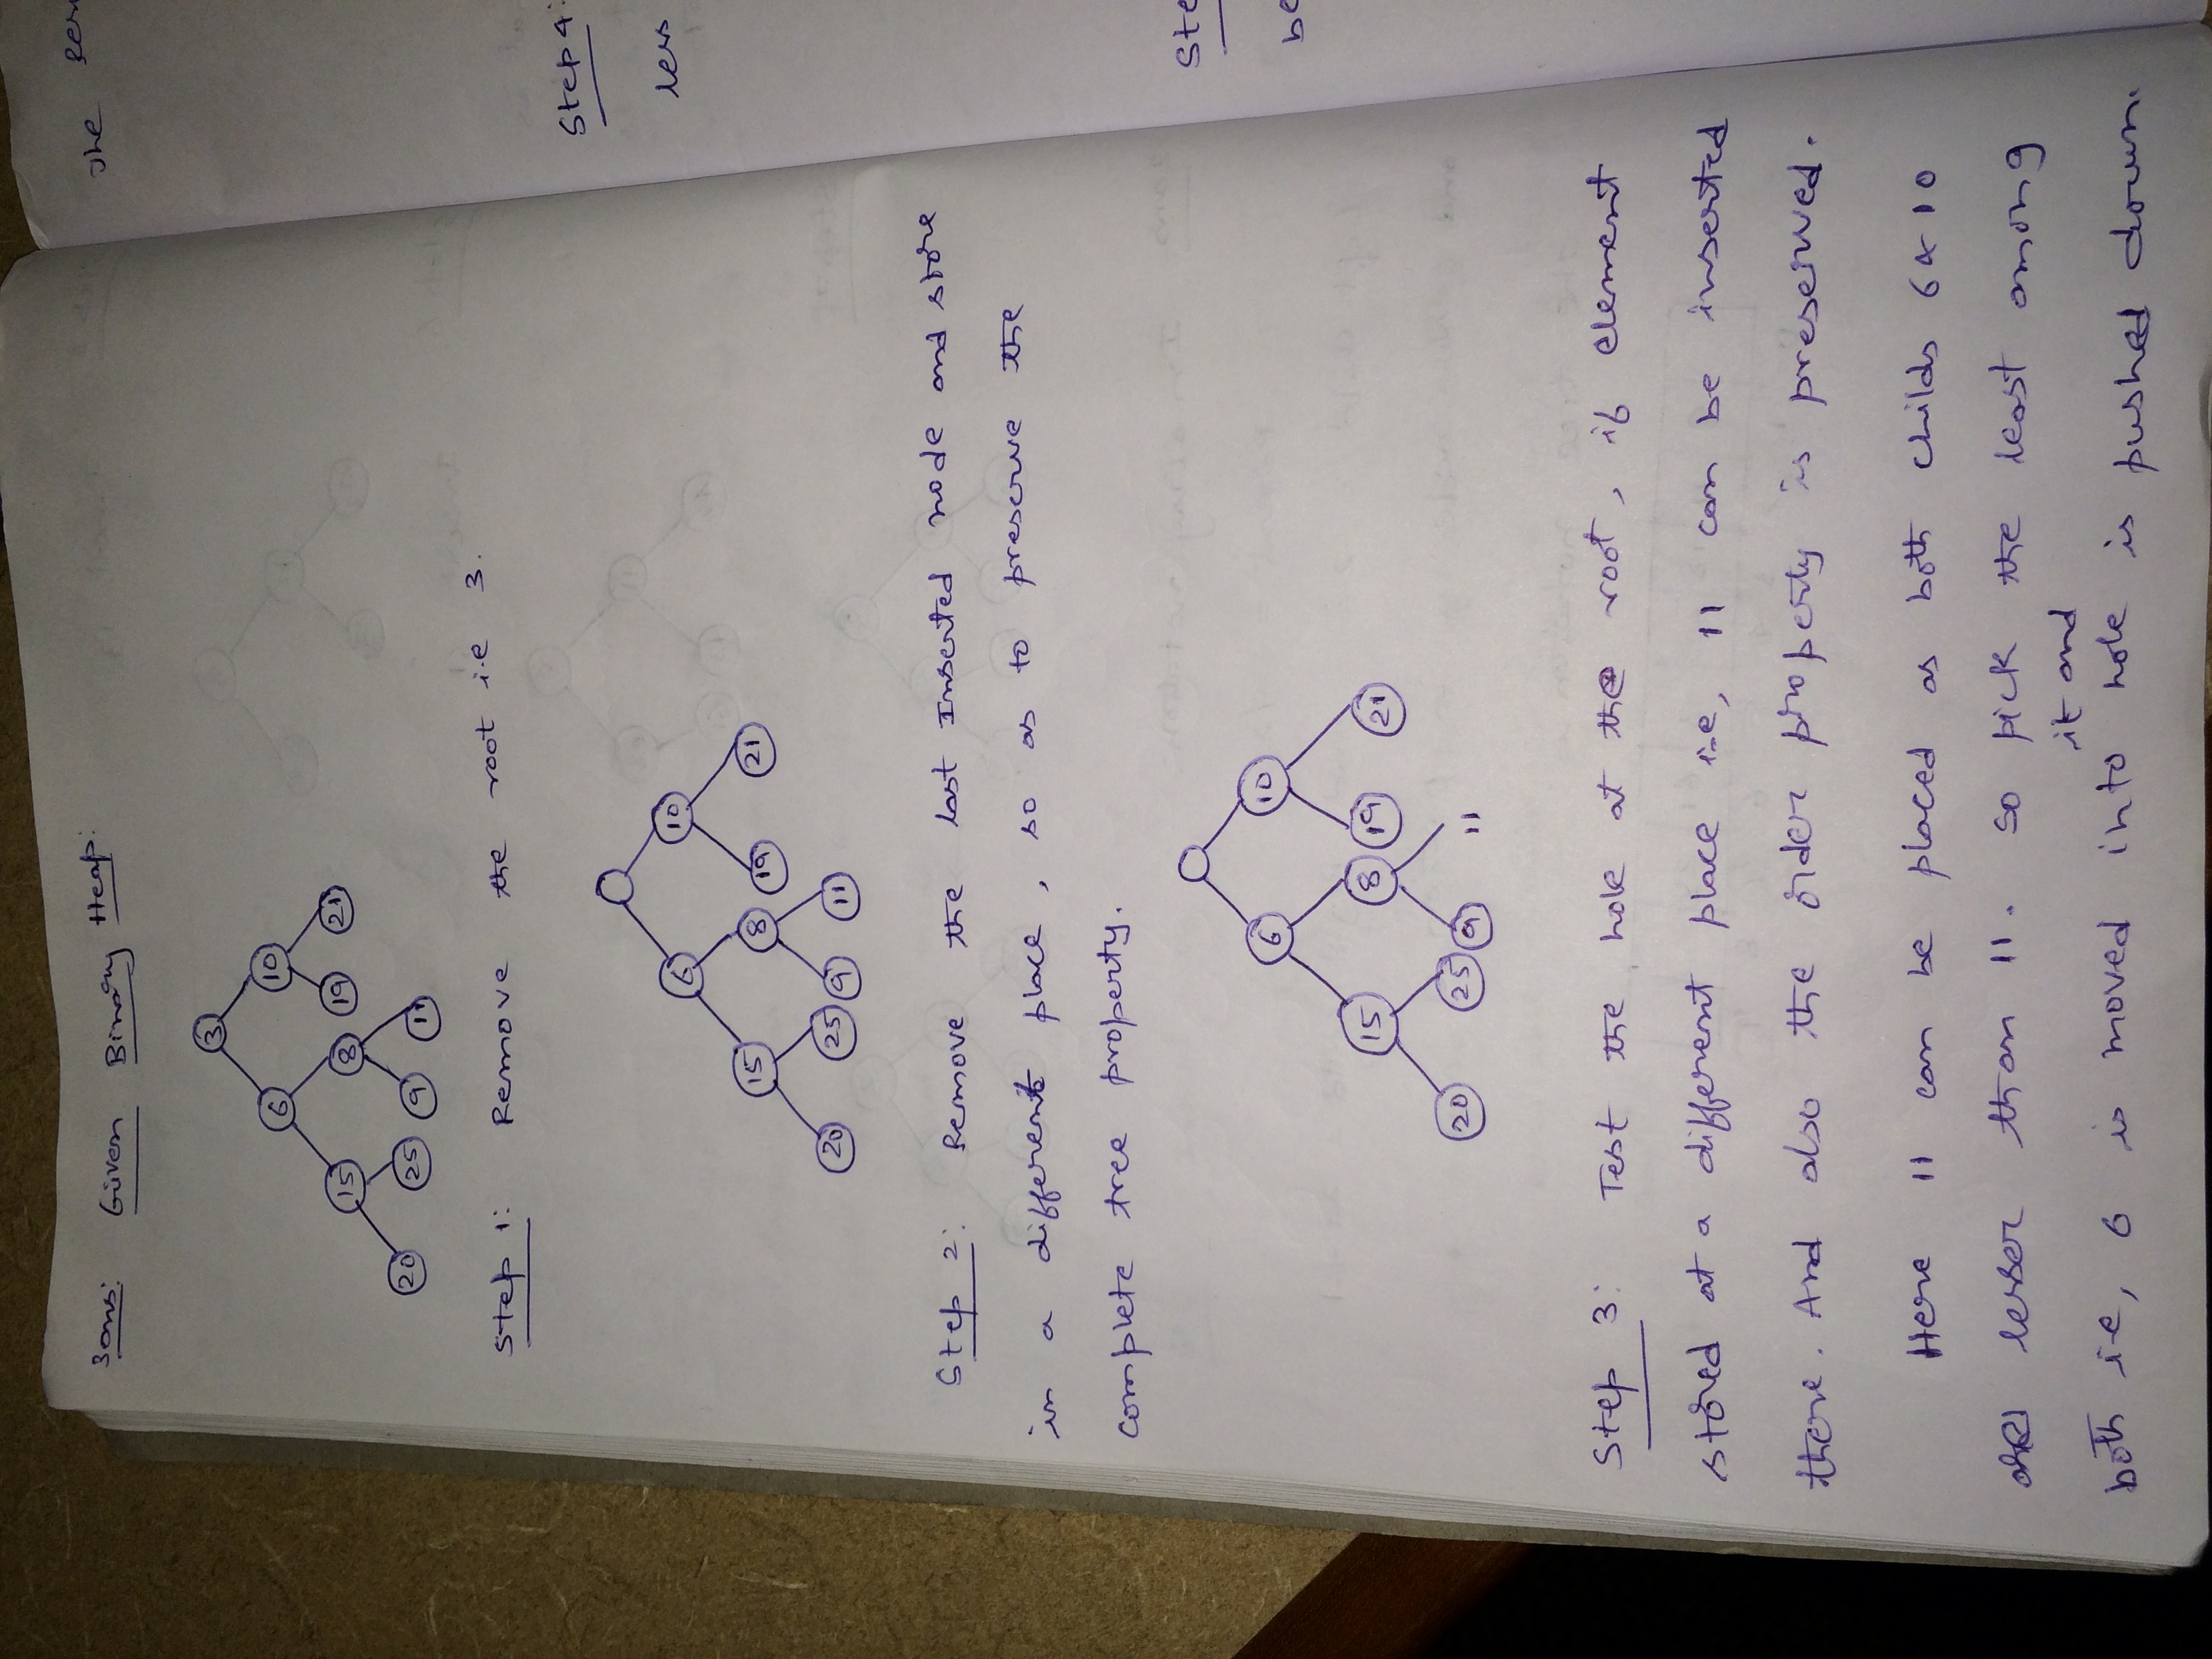 3ans: Given Binary Heap:
3
6 10
15 8 19 21
20 25 9 11
Step 1: Remove the root i.e 3.
6 10
15 8 19 21
20 25 9 11
Step 2: Remove the last Inserted node and store
in a different place, so as to preserve the
complete tree property.
6 10
15 8 19 21
20 25 9 11
Step 3: Test the hole at the root, if element
stored at a different place i.e, 11 can be inserted
there. And also the order property is preserved.
Here 11 can be placed as both childs 6 & 10
are lesser than 11. So pick the least among
it and
both i.e, 6 is moved into hole is pushed down.
The
Step 4:
less
Ste
be